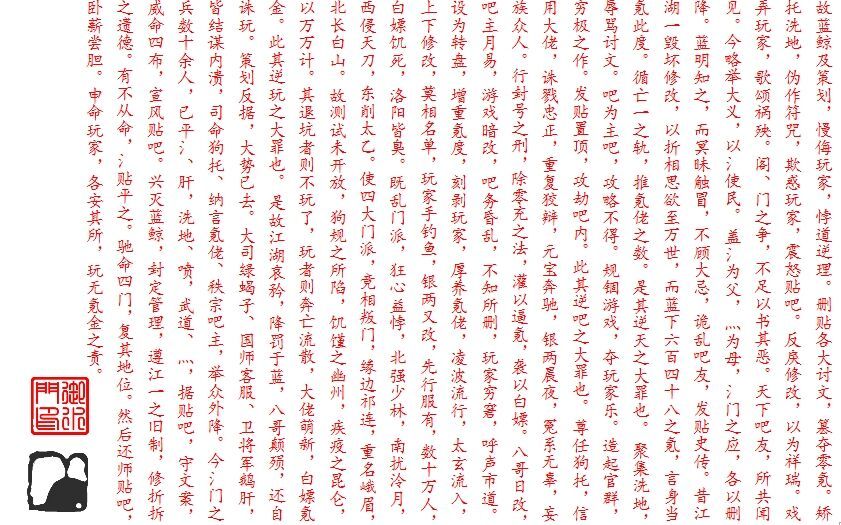 故蓝鲸及策划，慢侮玩家，悖道逆理。删贴各大讨文，篡夺零氪。矫
托洗地，伪作符咒，欺惑玩家，震怒贴吧。反戾修改，以为祥瑞。戏
弄玩家，歌颂祸殃。阁、门之争，不足以书其恶。天下吧友，所共闻
见。今略举大义，以氵使民。盖氵为父，灬为母，氵门之应，各以删
降。蓝明知之，而冥昧触冒，不顾大忌，诡乱吧友，发贴史传。昔江
湖一毁坏修改，以折相思欲至万世，而蓝下六百四十八之氪，言身当
氪此度。循亡一之轨，推氪佬之数。是其逆天之大罪也。聚集洗地，
辱骂讨文。吧为主吧，攻略不得。规锢游戏，夺玩家乐。造起官群，
穷极之作。发贴置顶，攻劫吧内。此其逆吧之大罪也。尊任狗托，信
用大佬，诛戮忠正，重复狡辩，元宝奔驰，银两晨夜，冤系无辜，妄
族众人。行封号之刑，除零充之法，灌以逼氪，袭以白嫖。八哥日改，
吧主月易，游戏暗改，吧务昏乱，不知所删，玩家穷窘，呼声市道。
设为转盘，增重氪度，刻剥玩家，厚养氪佬，凌波流行，太玄流入，
上下修改，莫相名单，玩家手钓鱼，银两又改，先行服有，数十万人，
白嫖饥死，洛阳皆臭。既乱门派，狂心益悖，北强少林，南扰泠月，
西侵天刀，东削太乙。使四大门派，竞相叛门，缘边祁连，重名峨眉，
北长白山。故测试未开放，狗规之所陷，饥馑之幽州，疾疫之昆仑，
以万万计。其退坑者则不玩了，玩者则奔亡流散，大佬萌新，白嫖氪
金。此其逆玩之大罪也。是故江湖哀矜，降罚于蓝，八哥颠殒，还自
诛玩。策划反据，大势已去。大司绿蝎子、国师客服、卫将军鹅肝，
皆结谋内溃，司命狗托、纳言氪佬、秩宗吧主，举众外降。今氵门之
兵数十余人，已平氵、肝，洗地、喷，武道、灬，据贴吧，守文案，
威命四布，宣风贴吧。兴灭蓝鲸，封定管理，遵江一之旧制，修折拆
之遗德。有不从命，氵贴平之。驰命四门，复其地位。然后还师贴吧，
卧薪尝胆。申命玩家，各安其所，玩无氪金之责。